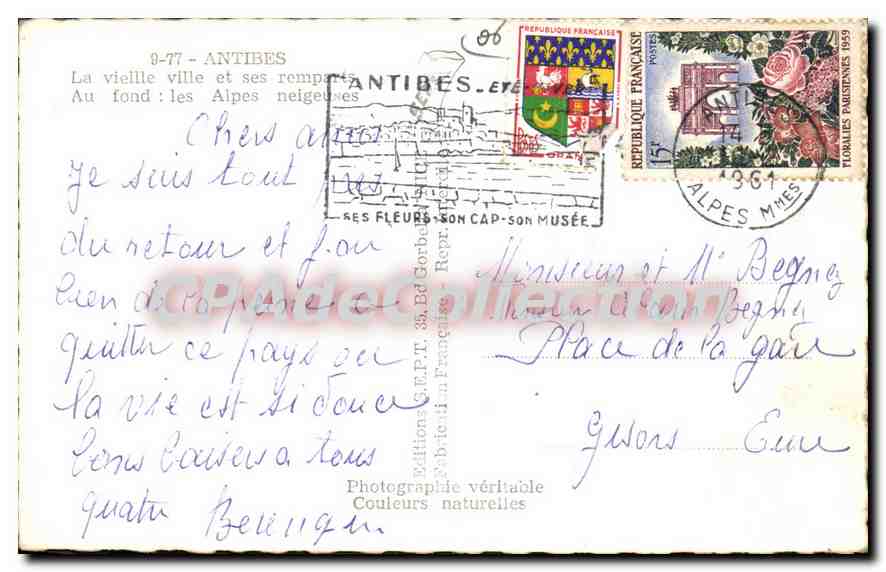 9-77 - ANTIBES
La vieille ville et ses remparts
Au fond : les Alpes neigeuses
06
ANTIBES - ETE - HIVER
SES FLEURS - SON CAP - SON MUSÉE
REPUBLIQUE FRANÇAISE
ORAN
REPUBLIQUE FRANÇAISE
POSTES
15F
FLORALIES PARISIENNES 1959
1961
ALPES MMES
Chers amis
Je suis tout près
du retour et j'ai
bien de la peine a
quitter ce pays ou
la vie est si douce
bons baisers a tous
quatre
Berengen
Editions S.E.P.T. 35, Bd Gorbella
Fabrication Française - Repr. Interdite
Photographie véritable
Couleurs naturelles
Monsieur et Me Begnez
Place de la gare
Gisors Eure
CPAdeCollection